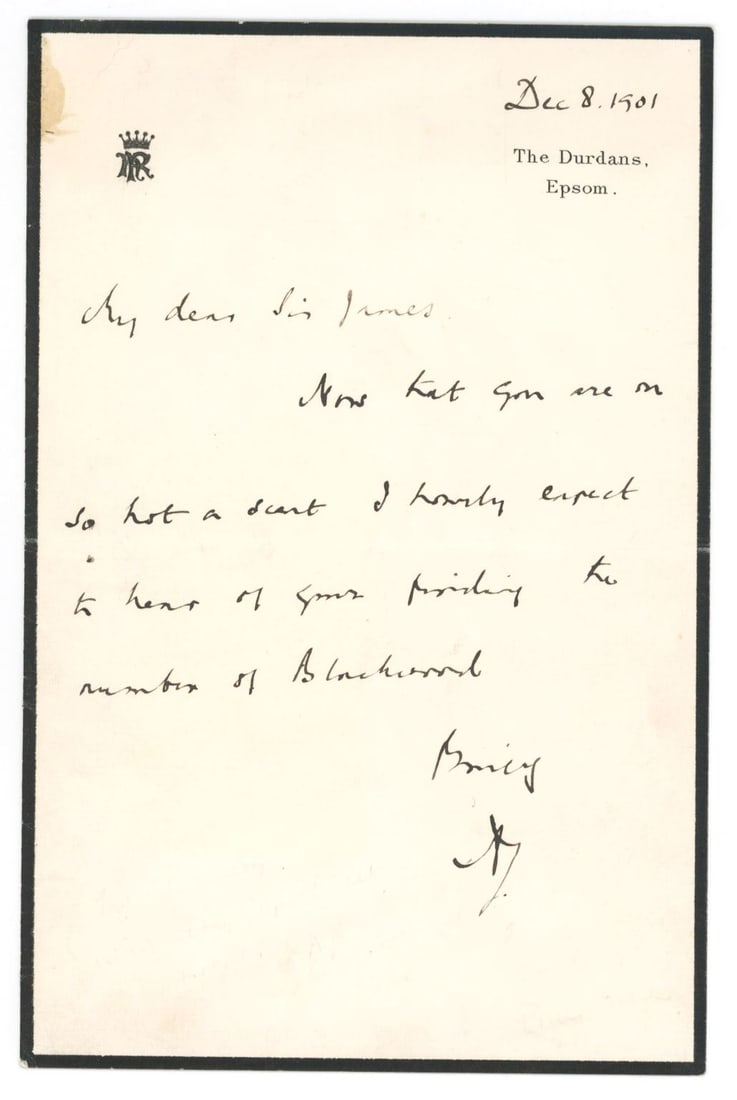 Dec 8. 1901
The Durdans,
Epsom.
My dear Sir James.
Now that you are on
so hot a scent I hourly expect
to hear of your finding the
number of Blackwood